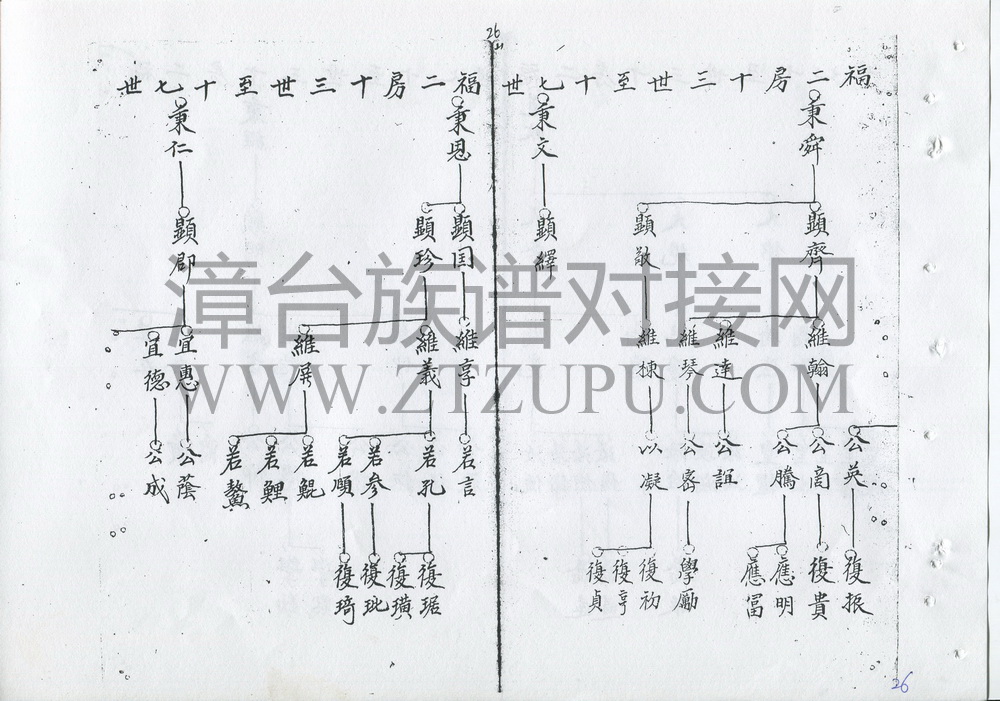 26
福二房十三世至十七世
秉舜
秉文
顯齊
顯敬
顯繹
維翰
維達
維琴
維棟
公英
公啇
公騰
公誼
公密
以凝
復振
復貴
應明
應富
學勵
復初
復亨
復貞
福二房十三世至十七世
秉恩
秉仁
顯閏
顯珍
顯郡
維享
維義
維屏
宜惠
宜德
若言
若孔
若参
若願
若鯤
若鯉
若鰲
公蔭
公成
復琚
復璜
復玭
復琦
漳台族谱对接网
WWW.ZTZUPU.COM
26